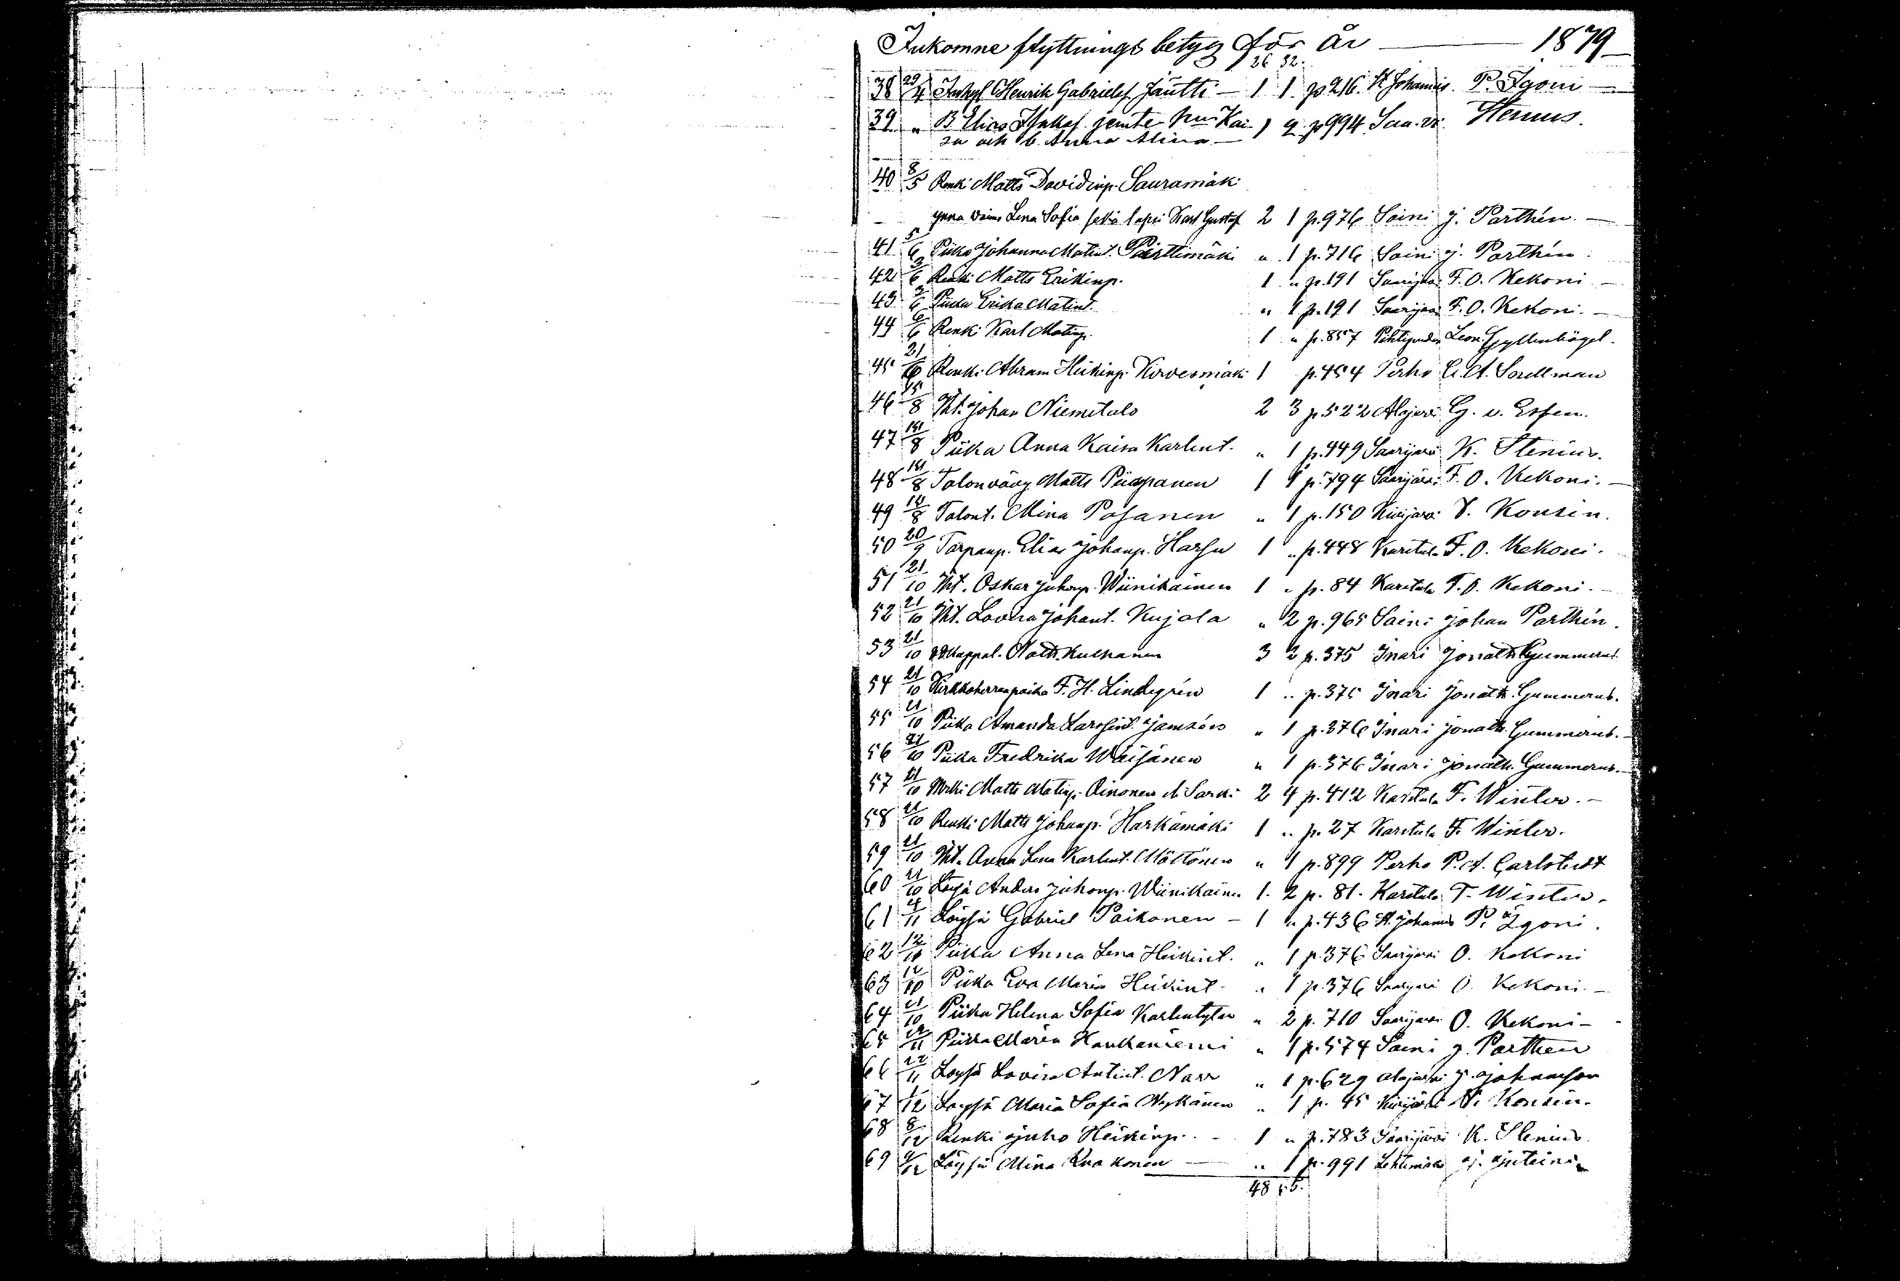 Inkomne flyttningsbetyg för år — 1879
26 32.
38 29/4 Inhys Henrik Gabrielsf. Jäutti — 1 1 p 216. St Johannis P. Igoni —
39 " B Elias jemte hu Kai- 1 2 p 994 Hemus.
sa och b. Anna Alina —
40 8/5 Renki Matts Davidinp. Sauramäki
ynna vaimo Lena Sofia sekä lapsi Karl Gustaf 2 1 p. 976 Soini j. Parthén. —
41 5/6 Piika Johanna Matint. Pärttimäki " 1 p. 716 Soini j. Parthén.
42 /6 Renki Matts Erikinp. 1 " p. 191 Saarijärvi F. O. Kekoni —
43 /6 Piika Erika Matint. " 1 p. 191 Saarijärvi F. O. Kekoni. —
44 6/6 Renki Karl Matinp. 1 " p. 857 Pihtipudas Leon. Gyllenbögel.
45 21/6 Renki Abram Heikinp. Kirvesmäki 1 p. 454 Perho C. A. Snellman
46 15/8 Iht. Johan Niemitalo 2 3 p. 522 Alajärvi G. v. Essen.
47 /8 Piika Anna Kaisa Karlint. " 1 p. 449 Saarijärvi K. Stenius.
48 /8 Talonvävy Matts Piispanen 1 1 p. 794 Saarijärvi F. O. Kekoni. —
49 18/8 Talont. Mina Posanen " 1 p. 150 Kivijärvi V. Konsin.
50 20/9 Torpanp. Elias Johanp. Harju 1 " p. 448 Karstula F. O. Kekoni.
51 21/10 Iht. Oskar Juhonp. Wiinikainen 1 " p. 84 Karstula F. O. Kekoni. —
52 21/10 Iht. Lovisa Johant. Kujala " 2 p. 965 Soini Johan Parthén.
53 21/10 Kappal. 3 2 p. 375 Inari Jonath. Gummerus.
54 21/10 Kirkkoherranpoika F. H. Lindegrén 1 " p. 375 Inari Jonath. Gummerus.
55 21/10 Piika Amanda Jämsén " 1 p. 376 Inari Jonath. Gummerus. —
56 21/10 Piika Fredrika Wäisänen " 1 p. 376 Inari Jonath. Gummerus. —
57 21/10 Matts Matinp. Oinonen 2 4 p. 412 Karstula F. Winter. —
58 21/10 Renki Matts Johanp. Harkämäki 1 " p. 27 Karstula F. Winter.
59 21/10 Iht. Anna Lena Karlint. Möttönen " 1 p. 899 Perho P. A. Carlstedt
60 21/10 Loisjä Anders Juhonp. Wiinikainen 1. 2 p. 81. Karstula F. Winter.
61 4/11 Loisjä Gabriel Paikonen — 1 " p. 436 St. Johannis P. Igoni.
62 12/10 Piika Anna Lena Heikint. " 1 p. 376 Saarijärvi O. Kekoni
63 12/10 Piika Eva Maria Heikint. " 1 p. 376 Saarijärvi O. Kekoni. —
64 21/10 Piika Helena Sofia Karlintytär " 2 p. 710 Saarijärvi O. Kekoni —
65 /11 Piika Maria Haukaniemi " 1 p. 574 Soini J. Parthen
66 22/11 Loisjä Lovisa Antint. " 1 p. 629 Alajärvi J. Johansson
67 1/12 Loisjä Maria Sofia Nykänen " 1 p. 45 Kivijärvi V. Konsin.
68 8/12 Renki Juho Heikinp. — 1 " p. 783 Saarijärvi K. Stenius.
69 9/12 Loisjä Mina Kuakonen — " 1 p. 991 Lehtimäki J. Juteini.
48 55.